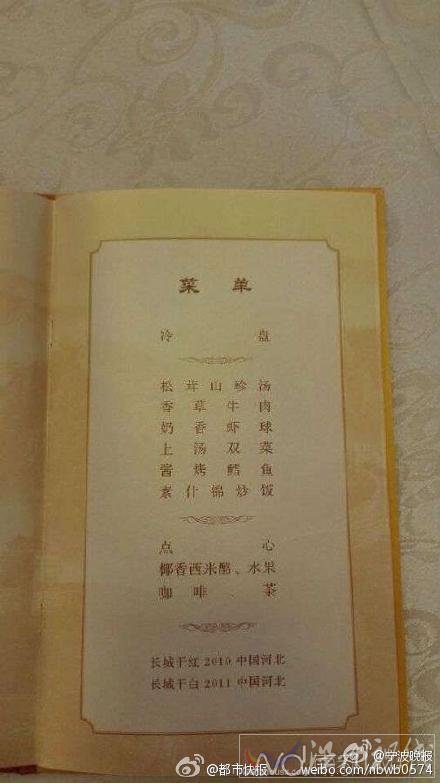 菜单
冷盘
松茸山珍汤
香草牛肉
奶香虾球
上汤双菜
酱烤鳕鱼
素什锦炒饭
点心
椰香西米酪、水果
咖啡、茶
长城干红 2010 中国河北
长城干白 2011 中国河北
@宁波晚报
@都市快报
weibo.com/nbwb0574